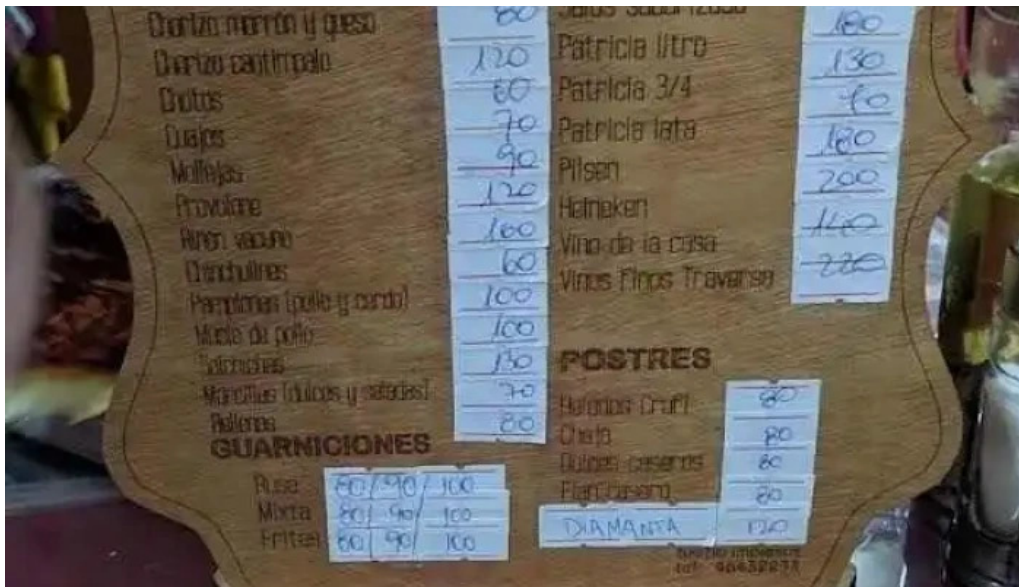 Chorizo morrón y queso 80
Chorizo cantimpalo 120
Chotos 60
Cuajos 70
Mollejas 90
Provolone 120
Riñón vacuno 160
Chinchulines 60
Pamplonas (pollo y cerdo) 100
Muslo de pollo 100
130
Morcillas (dulces y saladas) 70
Rellenas 80
GUARNICIONES
Rusa 80/90/100
Mixta 80/90/100
Fritas 80/90/100
180
Patricia litro 130
Patricia 3/4 90
Patricia lata 180
Pilsen 200
Heineken 140
Vino de la casa 220
Vinos Finos Traversa
POSTRES
Helados Crufi 80
Chajá 80
Dulces caseros 80
Flan casero 80
DIAMANTA 120